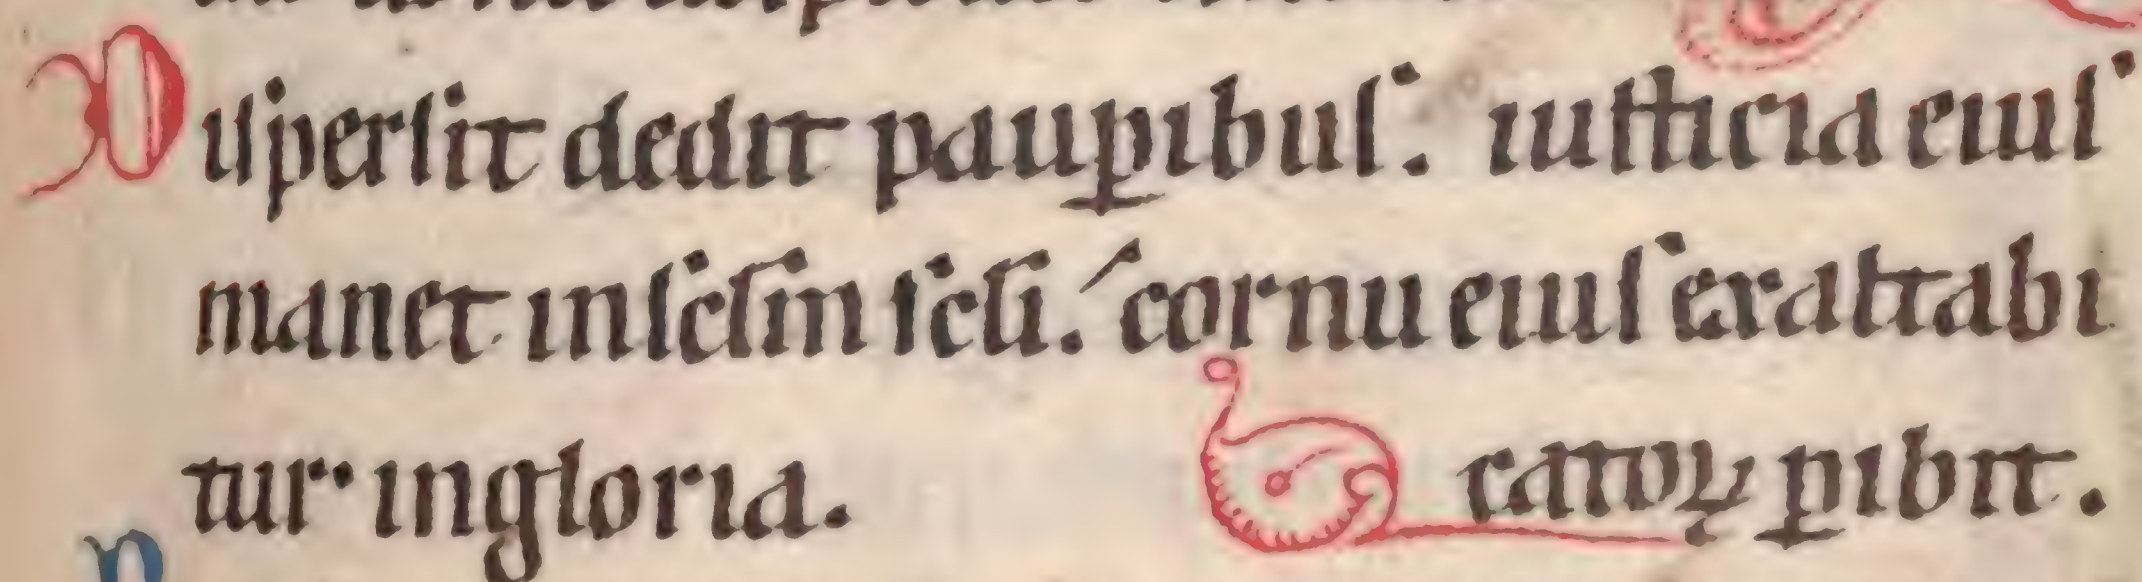 Diſperſit dedit paup̲ibuſ. iuſticia eiuſ
manet inſcl̅m ſcl̅i. cornu eiuſ exaltabi
tur in gloria.
catoꝝ ꝑibit.